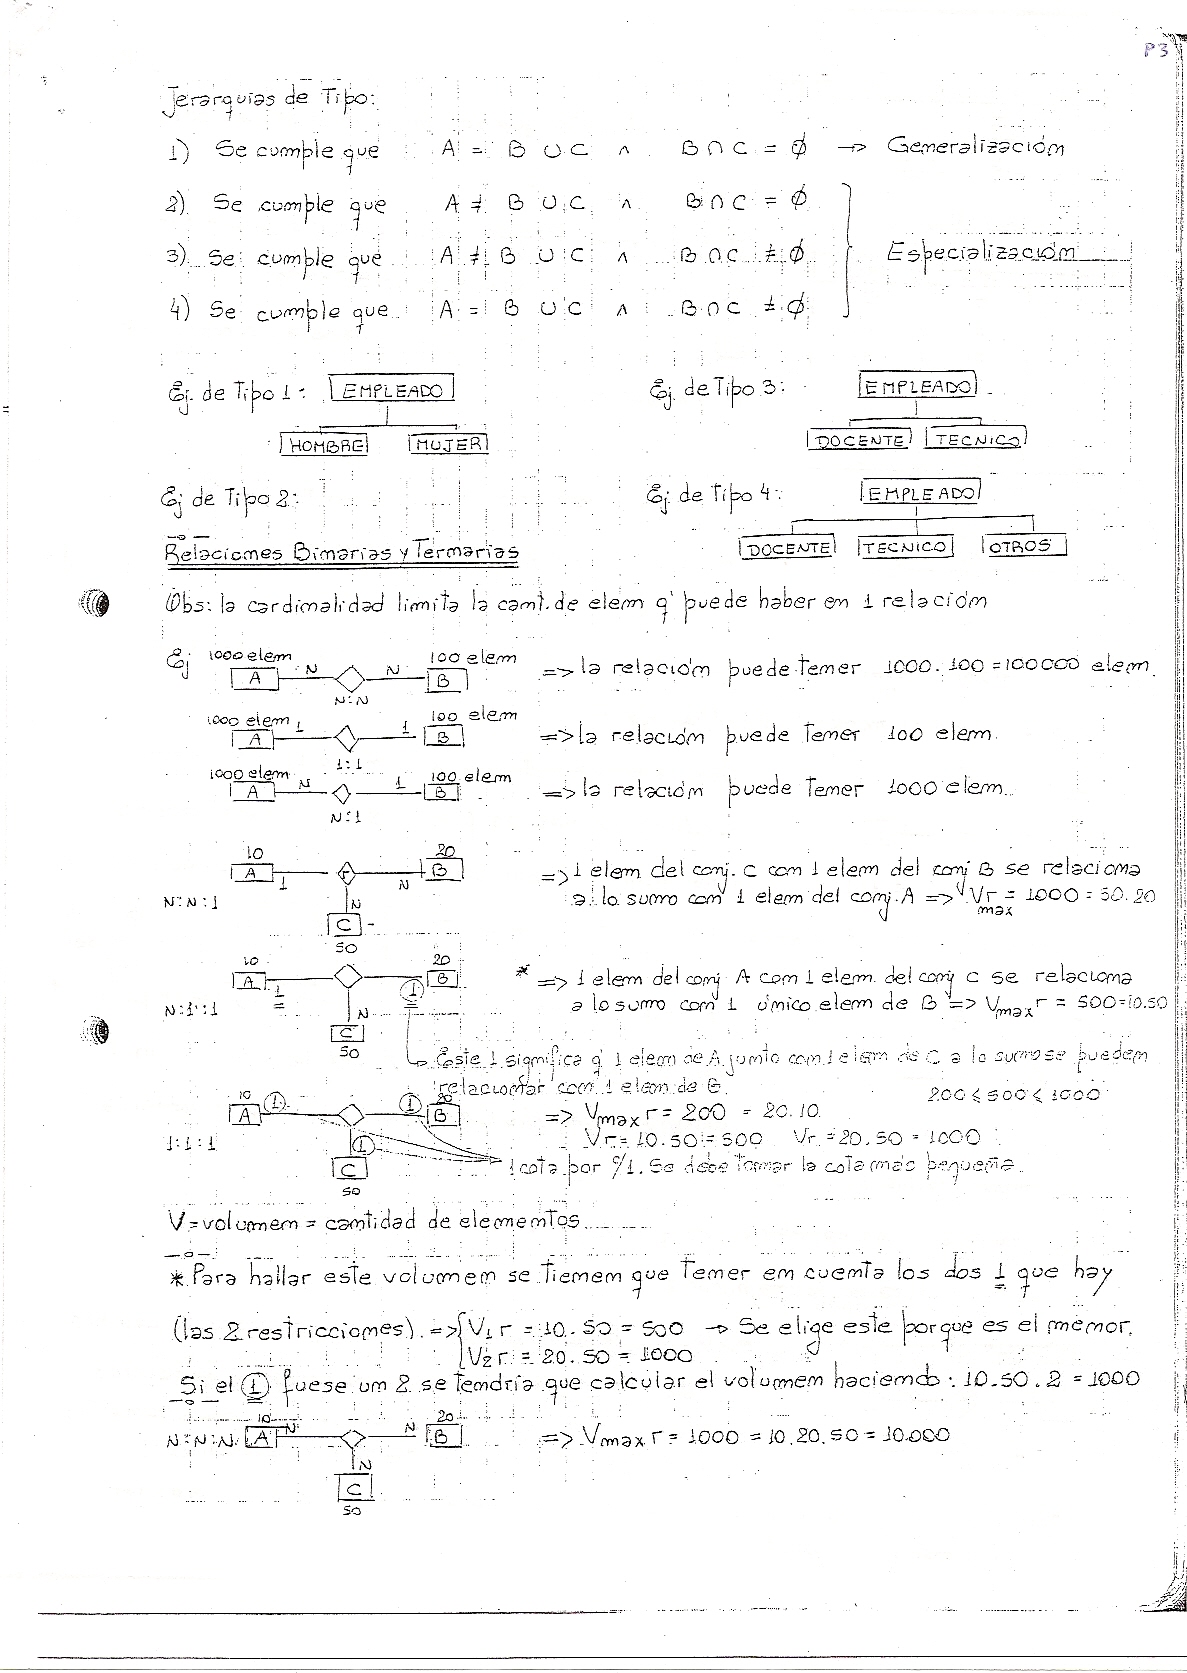 P3
Jerarquías de Tipo:
1) Se cumple que A = B ∪ C ∧ B ∩ C = ∅ → Generalización
2) Se cumple que A ≠ B ∪ C ∧ B ∩ C = ∅
3) Se cumple que A ≠ B ∪ C ∧ B ∩ C ≠ ∅ Especialización
4) Se cumple que A = B ∪ C ∧ B ∩ C ≠ ∅
Ej. de Tipo 1: EMPLEADO
HOMBRE MUJER
Ej. de Tipo 3: EMPLEADO
DOCENTE TECNICO
Ej de Tipo 2:
Ej. de Tipo 4: EMPLEADO
DOCENTE TECNICO OTROS
Relaciones Binarias y Ternarias
Obs: la cardinalidad limita la cant. de elem q' puede haber en 1 relación
Ej 1000 elem 100 elem
A N N B => la relación puede tener 1000.100 = 100000 elem.
N:N
1000 elem 100 elem
A 1 1 B => la relación puede tener 100 elem.
1:1
1000 elem 100 elem
A N 1 B => la relación puede tener 1000 elem.
N:1
10 20
A 1 N B => 1 elem del conj. C con 1 elem del conj B se relaciona
N:N:1 N a lo sumo con 1 elem del conj. A => Vr = 1000 = 50.20
max
C
50
10 20
A 1 1 B * => 1 elem del conj A con 1 elem. del conj C se relaciona
N:1:1 N a lo sumo con 1 único elem de B => Vmax r = 500 = 10.50
C
50
Este 1 significa q' 1 elem de A junto con 1 elem de C a lo sumo se pueden
relacionar con 1 elem de B.
200 < 500 < 1000
10 20
A 1 1 B => Vmax r = 200 = 20.10
1:1:1 1 Vr = 10.50 = 500 Vr = 20.50 = 1000
C 1 cota por c/1. Se debe tomar la cota más pequeña.
50
V = volumen = cantidad de elementos
* Para hallar este volumen se tienen que tener en cuenta los dos 1 que hay
(las 2 restricciones) => V1 r = 10.50 = 500 → Se elige este porque es el menor.
V2 r = 20.50 = 1000
Si el 1 fuese un 2 se tendría que calcular el volumen haciendo: 10.50.2 = 1000
10 20
N:N:N A N N B => Vmax r = 1000 = 10.20.50 = 10.000
N
C
50